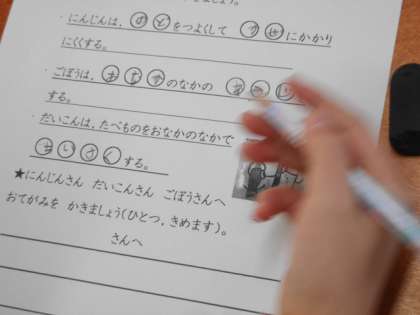 ましょう。
・にんじんは、 を つよくして かぜ にかかり
にくくする。
・ごぼうは、おなか のなかの
する。
・だいこんは、たべものをおなかのなかで
ちいさく する。
★にんじんさん だいこんさん ごぼうさんへ
おてがみを かきましょう(ひとつ、きめます)。
さんへ